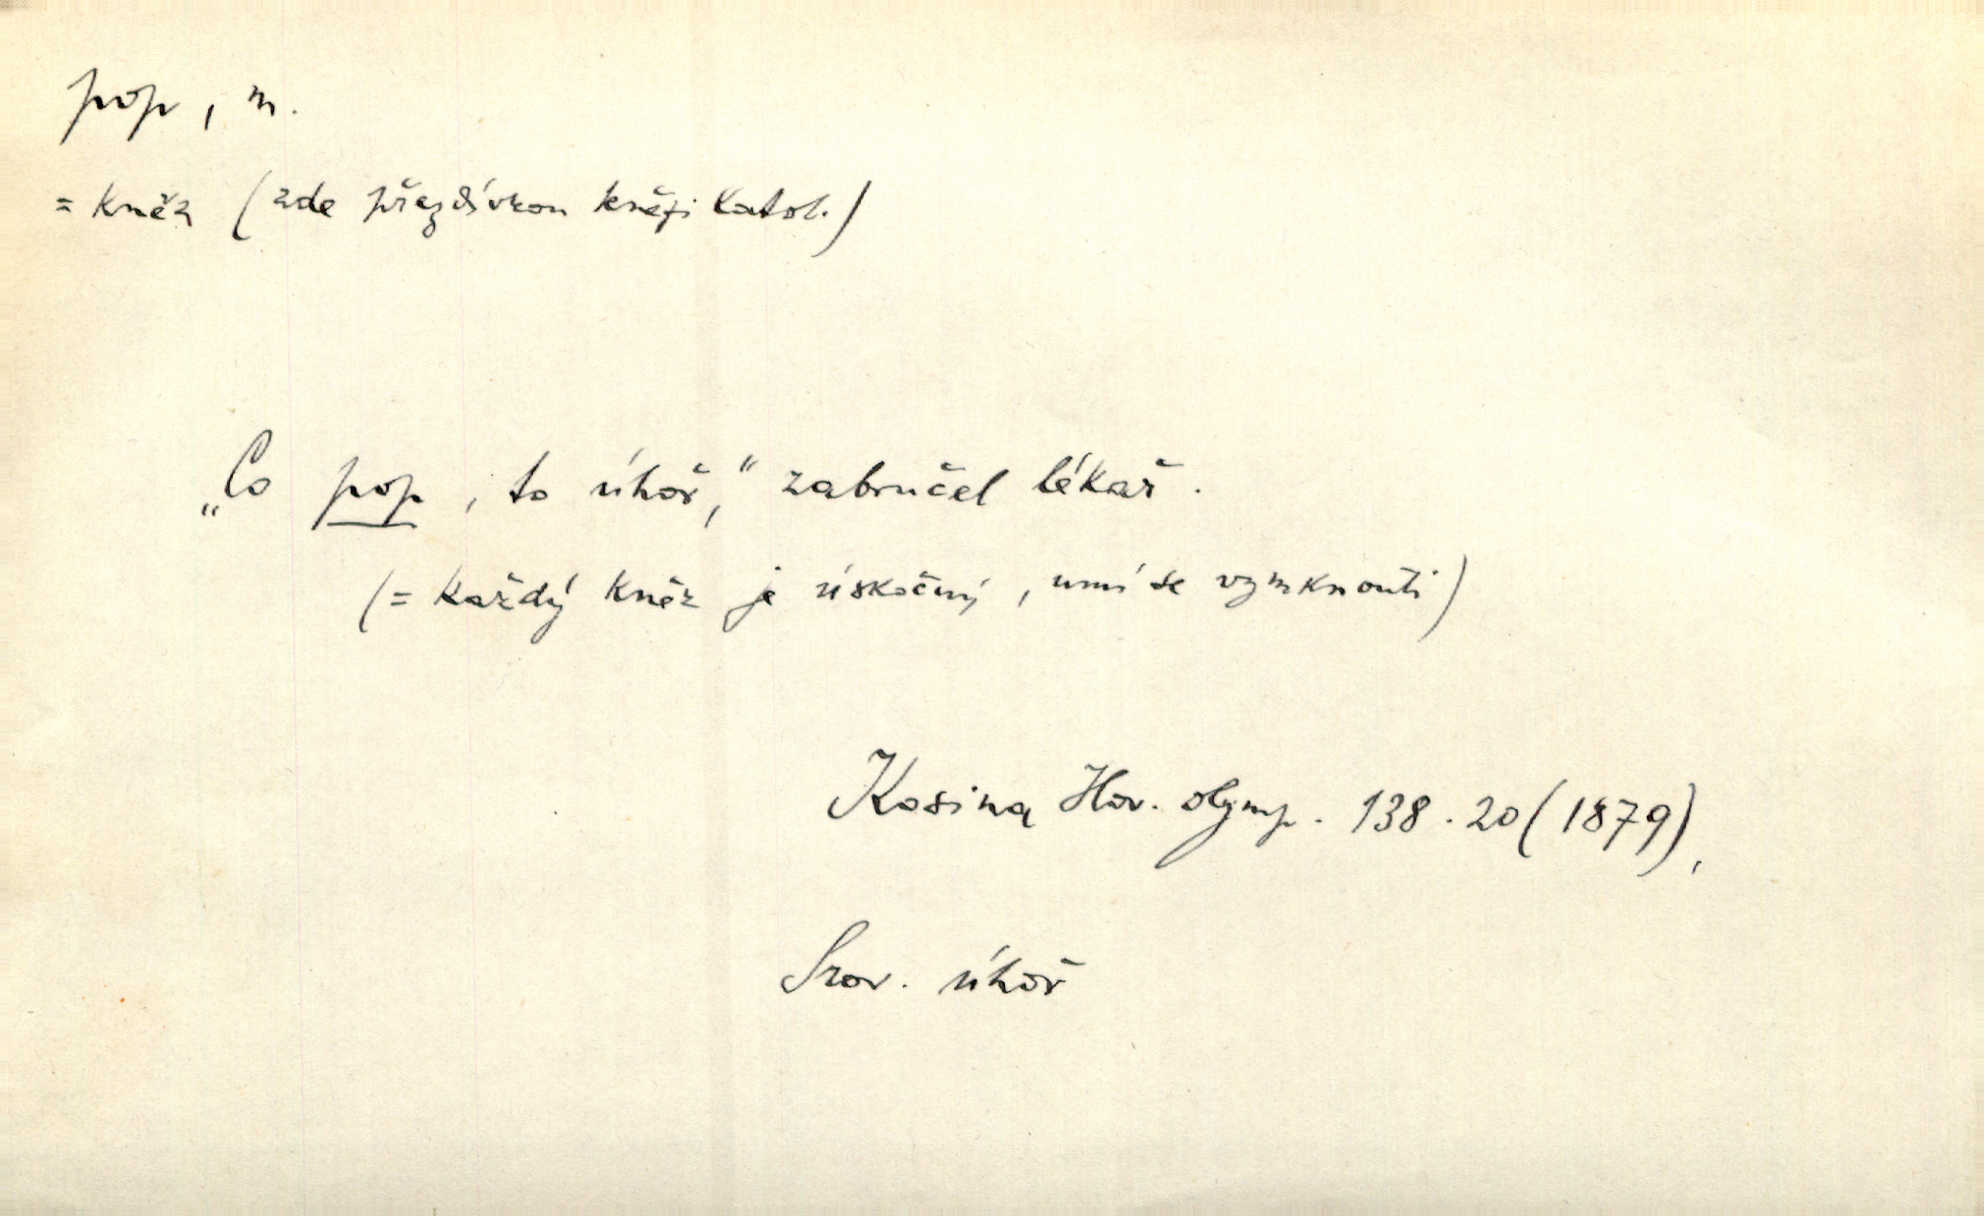 pop, m.
= kněz (zde přezdívkou kněži katol.)
„Co pop, to úhoř,“ zabručel lékař.
(= každý kněz je úskočný, umí se vymknouti)
Kosina Hov. olymp. 138.20 (1879),
Srov. úhoř